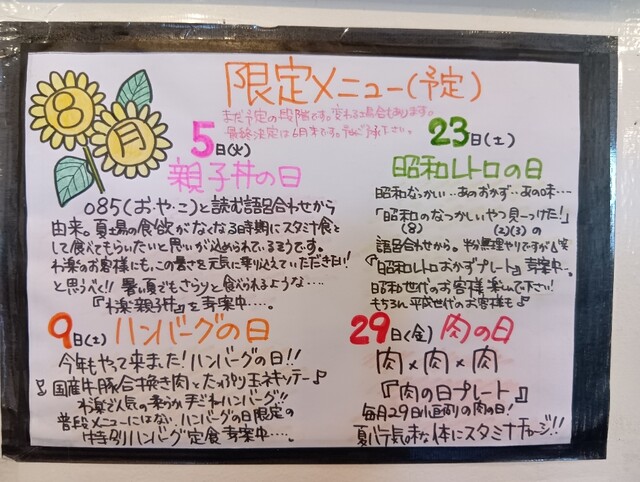 8月
限定メニュー(予定)
まだ予定の段階です。変わる場合もあります。
最終決定は6月末です。予めご了承下さい。
5日(火)
親子丼の日
085(お・や・こ)と読む語呂合わせから
由来。夏場の食欲がなくなる時期にスタミナ食と
して食べてもらいたいと思いが込められているそうです。
お客様にも、この暑さを元気に乗り越えていただきたい!
と思うべく!! 暑い夏でもさらっと食べられるような…
楽親子丼』を考案中….
9日(土) ハンバーグの日
今年もやって来ました!ハンバーグの日!!
国産牛豚合挽き肉とたっぷり玉ネギソテー♪
楽で人気の柔らか手ごねハンバーグ!!
普段メニューにはない、ハンバーグの日限定の
特別ハンバーグ定食 考案中….
23日(土)
昭和レトロの日
昭和なつかしい…あのおかず…あの味…
「昭和のなつかしいやつ見〜つけた!」
(8) (2)(3)
の
語呂合わせから。半分無理やりですが
『昭和レトロおかずプレート』考案中…。
昭和世代のお客様 楽しんで下さい!
もちろん平成世代のお客様も♪
29日(金) 肉の日
肉×肉×肉
『肉の日プレート』
毎月29日は肉の日!
夏バテ気味な体にスタミナチャージ!!